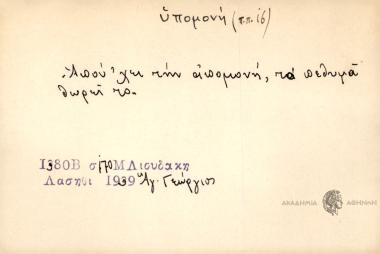 ὑπομονή (π.π. 16)
Ἀπού 'χει τὴν ἀπομονή, τὸ πεθυμᾶ
θωρεῖ το.
1380Β σ. 170 Μ Λιουδακη
Λασηθι 1939 Ἁγ. Γεώργιος
ΑΚΑΔΗΜΙΑ ΑΘΗΝΩΝ